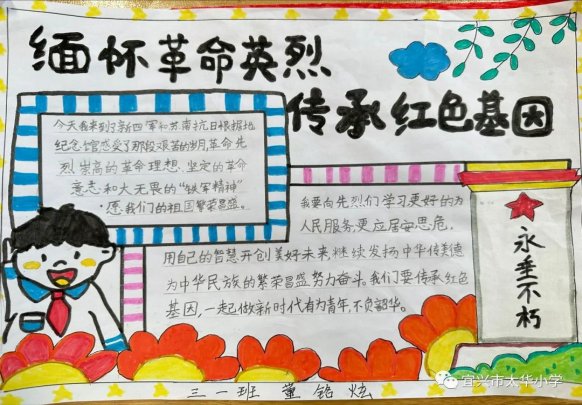 缅怀革命英烈
传承红色基因
今天我来到了新四军和苏南抗日根据地
纪念馆感受了那段艰苦的岁月,革命先
烈崇高的革命理想、坚定的革命
意志和大无畏的“铁军精神”
愿我们的祖国繁荣昌盛。
我要向先烈们学习更好的为
人民服务,更应居安思危,
用自己的智慧开创美好未来,继续发扬中华传美德
为中华民族的繁荣昌盛努力奋斗。我们要传承红色
基因,一起做新时代有为青年,不负韶华。
永垂不朽
三一班 董铭炫
宜兴市太华小学